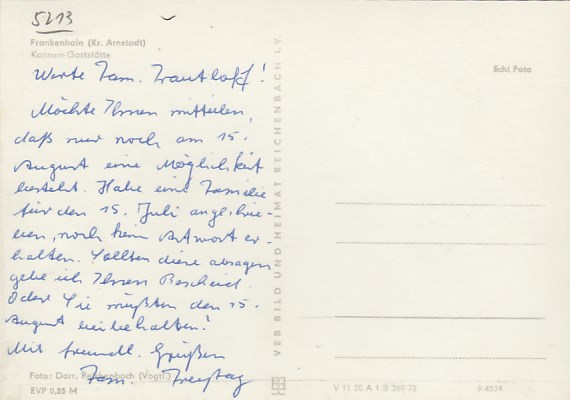 5213
Frankenhain (Kr. Arnstadt)
Konsum-Gaststätte
Werte Fam. Trautloff!
Möchte Ihnen mitteilen,
daß nur noch am 15.
August eine Möglichkeit
besteht. Habe eine Familie
für den 15. Juli angeschrie-
ben, noch kein Antwort er-
halten. Sollten diese absagen
gebe ich Ihnen Bescheid.
Oder Sie müßten den 15.
August beibehalten!
Mit freundl. Grüßen
Fam. Freytag
Foto: Darr, Reichenbach (Vogtl.)
EVP 0,25 M
VEB BILD UND HEIMAT REICHENBACH i.V.
Echt Foto
V 11 50 A 1 B 369 78
9.4534